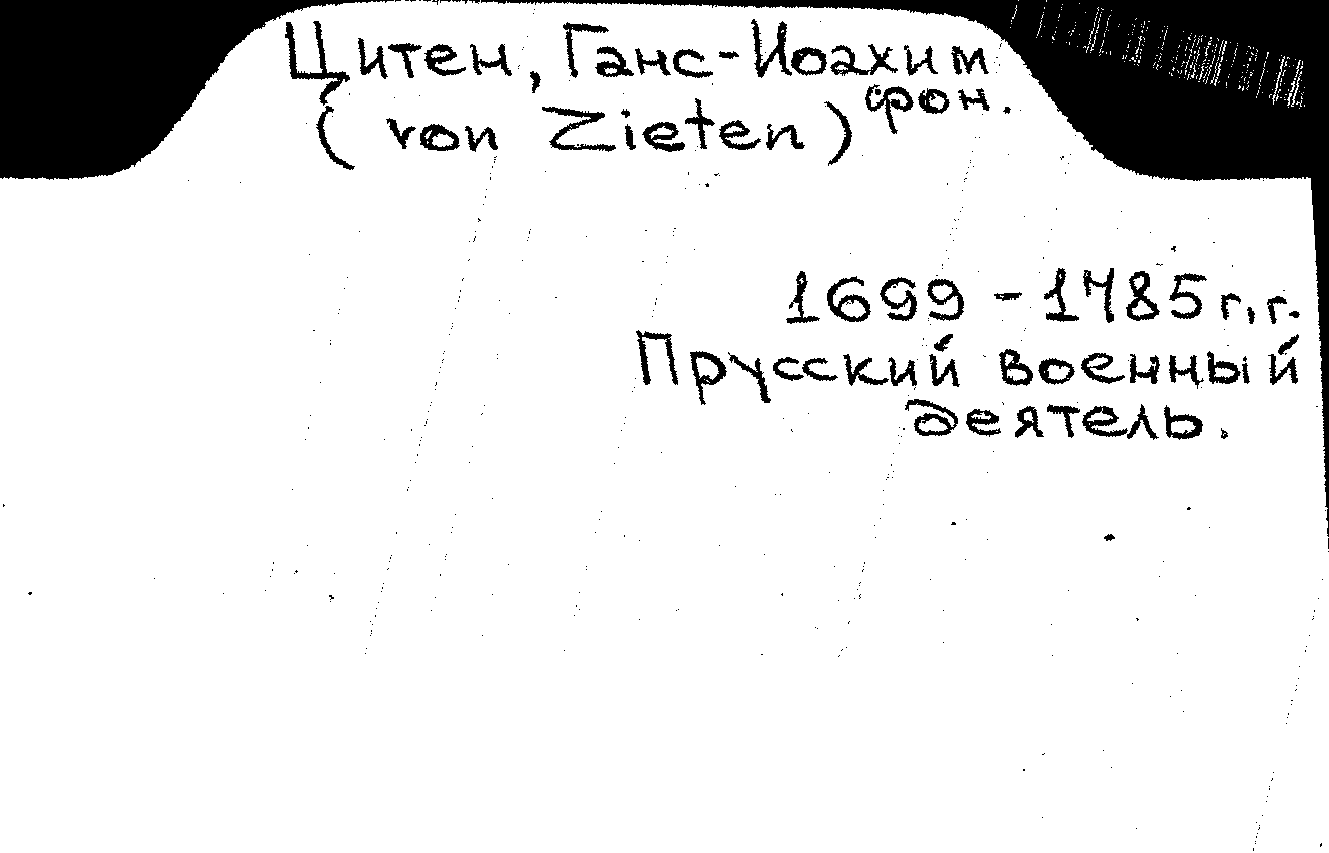 Цитен, Ганс-Иоахим
фон.
(von Zieten)
1699 - 1785 г.г.
Прусский военный
деятель.